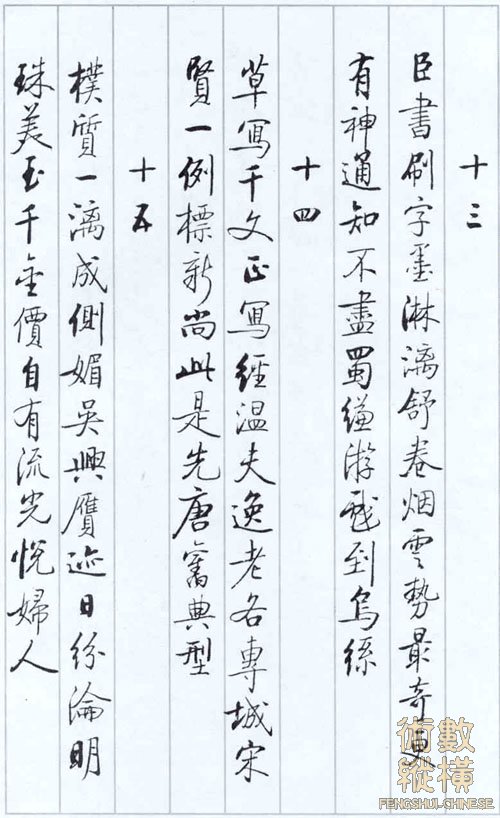 十三
臣書刷字墨淋漓舒卷烟雲勢最奇更
有神通知不盡蜀縑游戲到烏絲
十四
草寫千文正寫經温夫逸老各專城宋
賢一例標新尚此是先唐舊典型
十五
樸質一漓成側媚吳興贋迹日紛淪明
珠美玉千金價自有流光悅婦人
術數縱橫
FENGSHUI-CHINESE